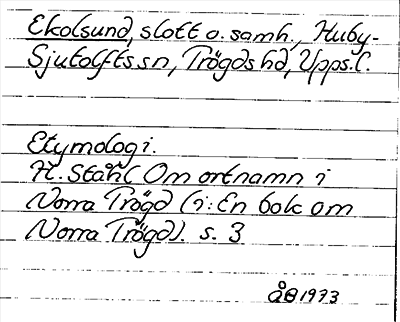 Ekolsund, slott o. samh., Huby-
Sjutolfts sn, Trögds hd, Upps. l.
Etymologi.
H. Ståhl Om ortnamn i
Norra Trögd (i: En bok om
Norra Trögd). s. 3
ÅB 1973